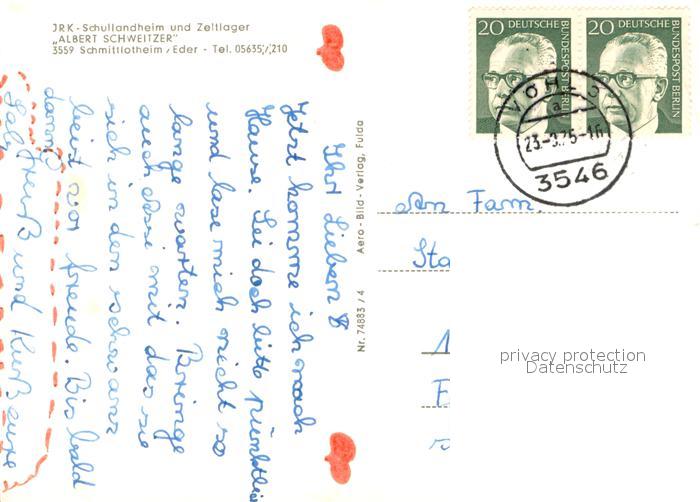 JRK - Schullandheim und Zeltlager
„ALBERT SCHWEITZER"
3559 Schmittlotheim / Eder - Tel. 05635/210
20 DEUTSCHE BUNDESPOST BERLIN
20 DEUTSCHE BUNDESPOST BERLIN
VÖHL 2
a
23.-3.75-16
3546
Ihr Lieben 8
Jetzt komme ich nach
Hause. Sei doch bitte pünktlich
und lase mich nicht so
lange warten. Bringe
auch Assi mit das sie
sich in den schwanz
beist vor freude. Bis bald
dann
Gruß und Kuß eure
Aero - Bild - Verlag, Fulda
Nr. 74883 / 4
An Fam.
Sta
privacy protection
Datenschutz